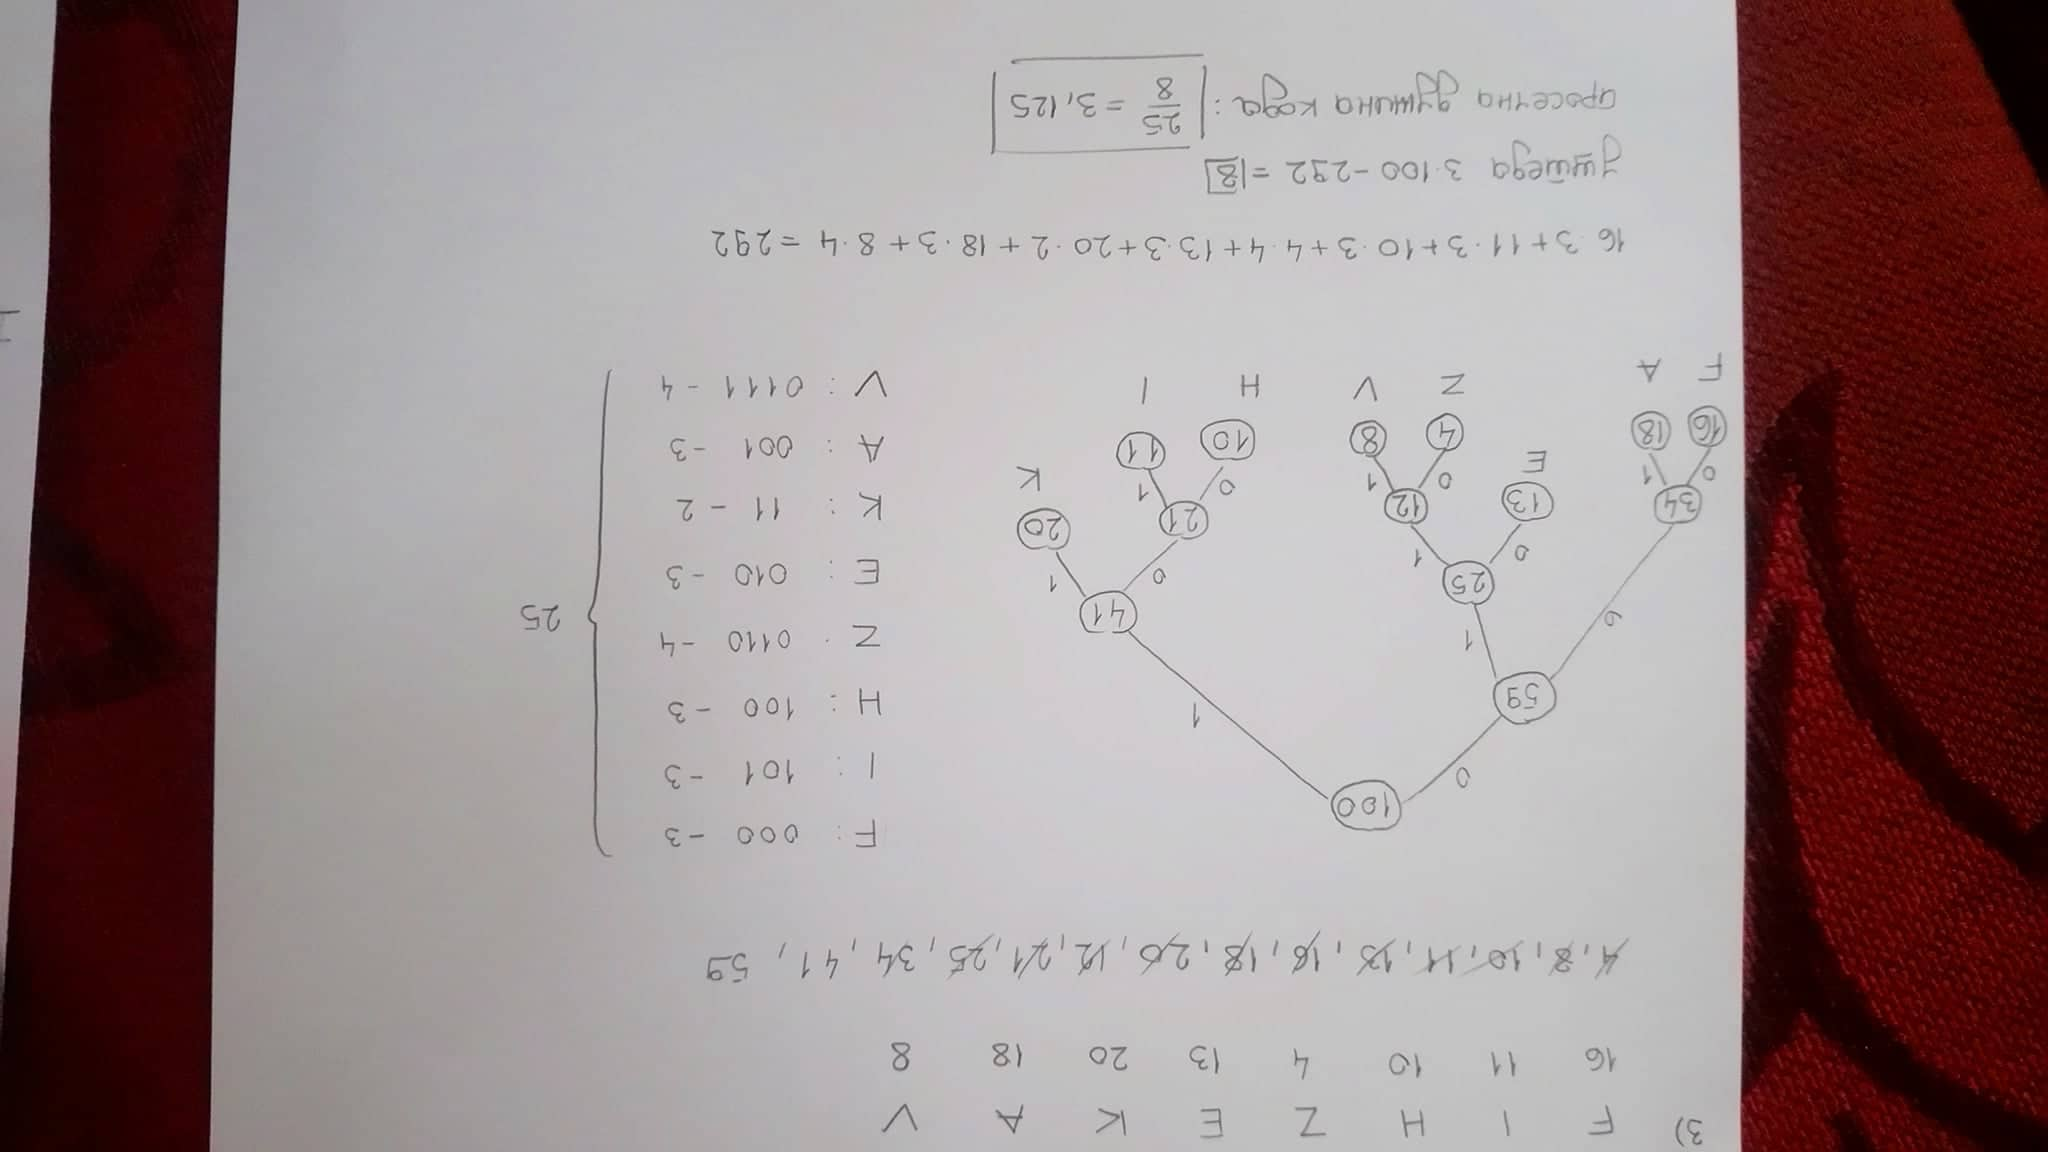 3) F I H Z E K A V
16 11 10 4 13 20 18 8
4, 8, 10, 11, 13, 16, 18, 20, 12, 21, 25, 34, 41, 59
100
0 1
59 41
0 1 0 1
34 25 21 20 K
0 1 0 1 0 1
16 18 13 12 10 11
F A E 0 1 H I
4 8
Z V
F: 000 - 3
I: 101 - 3
H: 100 - 3
Z. 0110 - 4
E: 010 - 3
K: 11 - 2
A: 001 - 3
V: 0111 - 4
25
16·3+11·3+10·3+4·4+13·3+20·2+18·3+8·4 = 292
уштеда 3·100-292 = 8
просечна дужина кода: 25/8 = 3,125